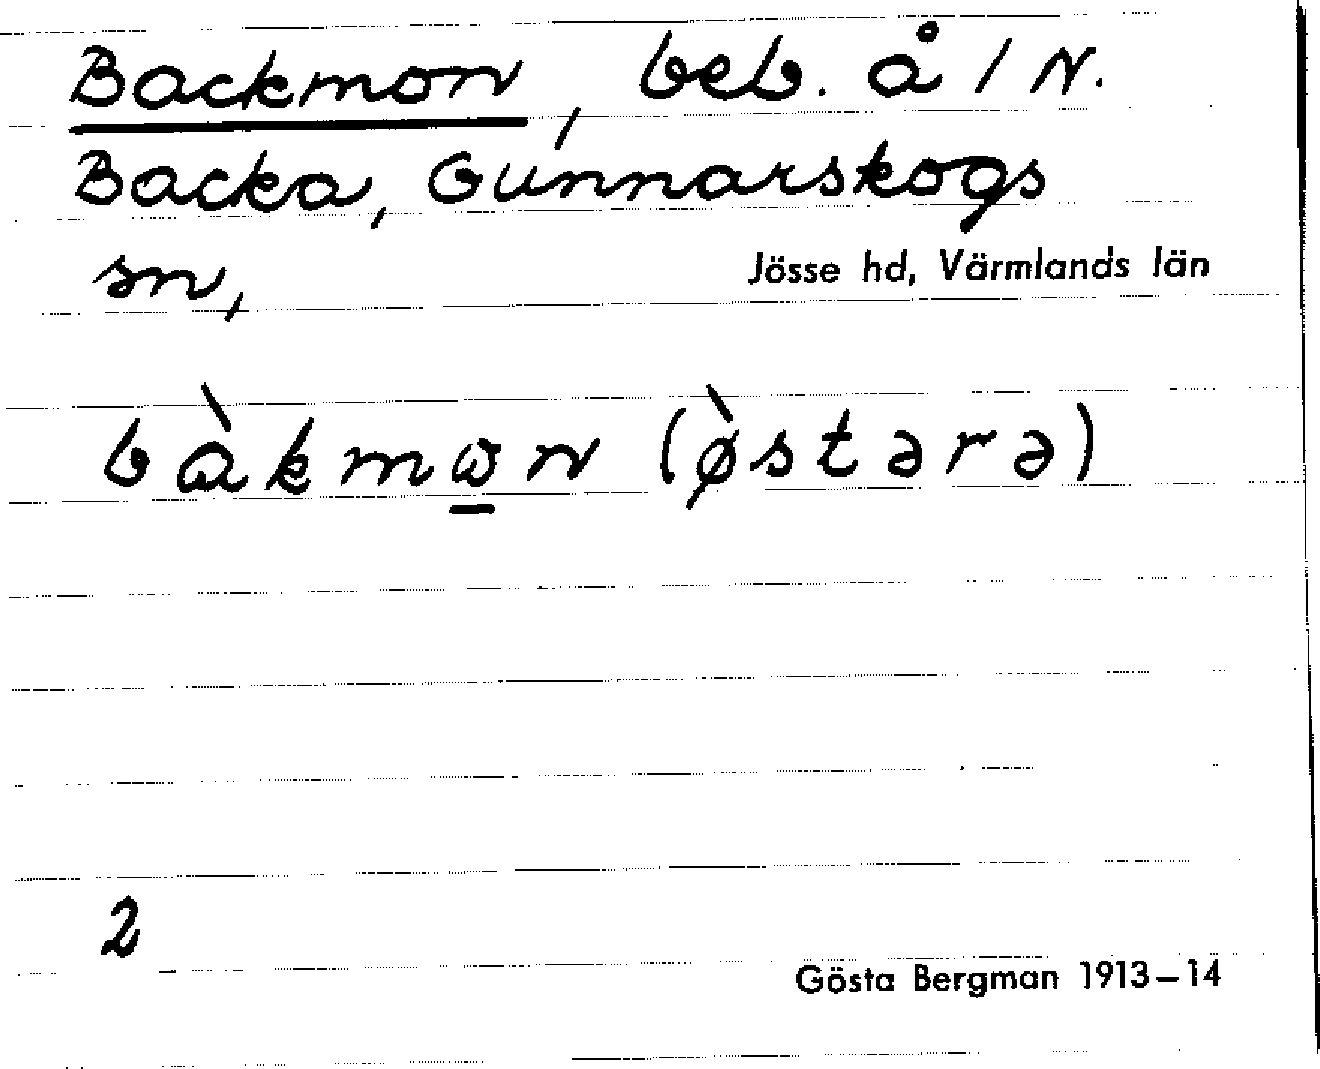 Backmon, beb. å 1 N.
Backa, Gunnarskogs
sn,
Jösse hd, Värmlands län
bàkmω̲n (ø̀stərə)
2
Gösta Bergman 1913–14